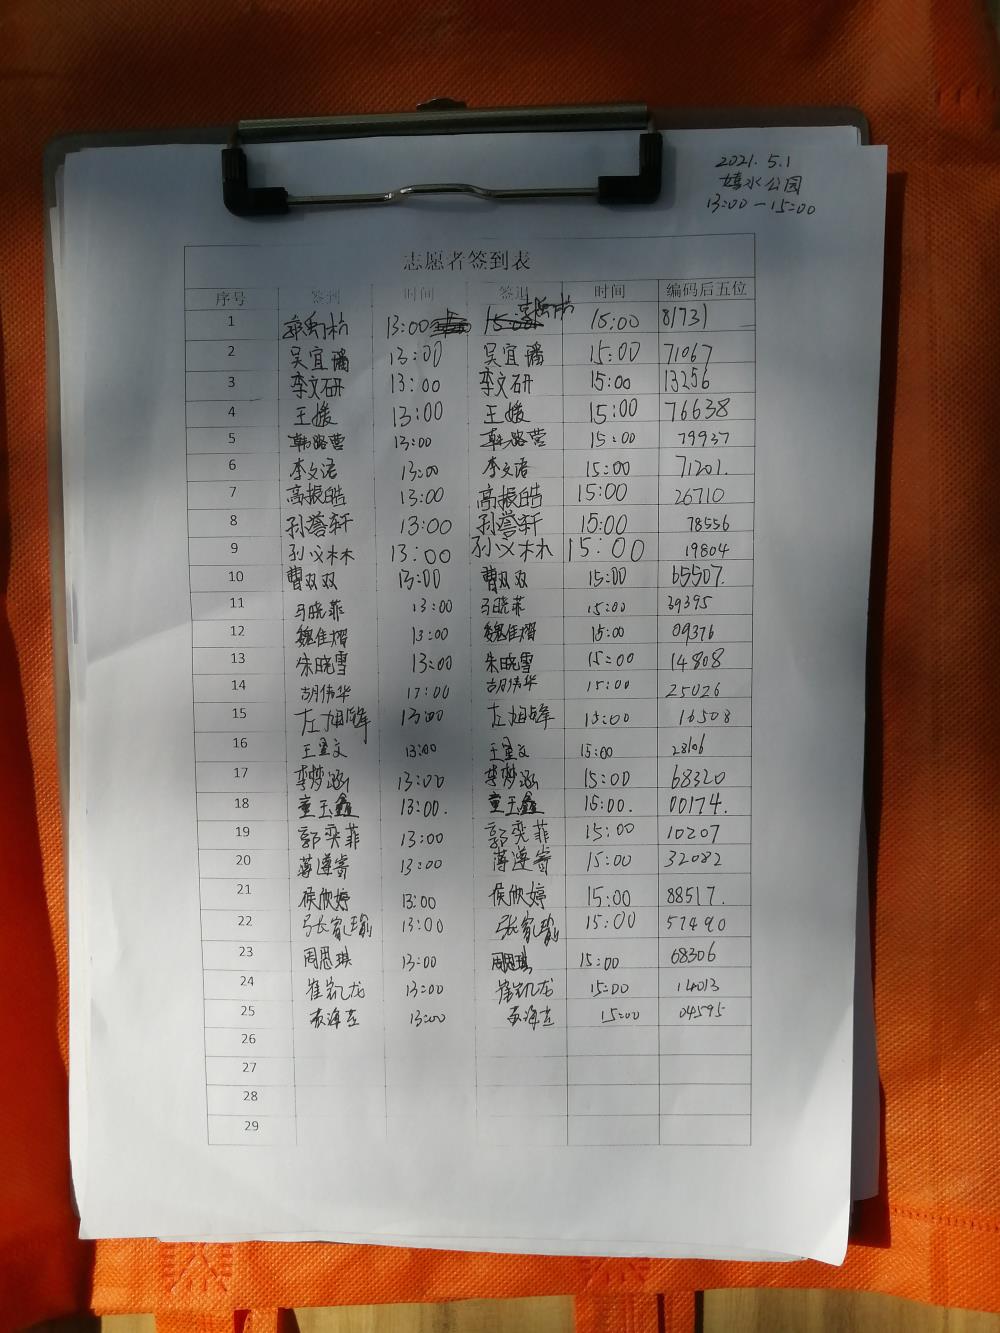 2021. 5.1
嬉水公园
13:00 — 15:00
志愿者签到表
序号 签到 时间 签退 时间 编码后五位
1 13:00 15:00 81731
2 吴宜璠 13:00 吴宜璠 15:00 71067
3 李文研 13:00 李文研 15:00 13256
4 王媛 13:00 王媛 15:00 76638
5 韩路营 13:00 韩路营 15:00 79937
6 李文语 13:00 李文语 15:00 71201.
7 高振皓 13:00 高振皓 15:00 26710
8 孙誉轩 13:00 孙誉轩 15:00 78556
9 孙义林 13:00 孙义林 15:00 19804
10 曹双双 13:00 曹双双 15:00 65507.
11 马晓菲 13:00 马晓菲 15:00 39395
12 魏佳熠 13:00 魏佳熠 15:00 09376
13 朱晓雪 13:00 朱晓雪 15:00 14808
14 胡伟华 13:00 胡伟华 15:00 25026
15 左旭 13:00 左旭 15:00 16508
16 王星文 13:00 王星文 15:00 28106
17 李梦涵 13:00 李梦涵 15:00 68320
18 童玉鑫 13:00. 童玉鑫 15:00. 00174.
19 郭奕菲 13:00 郭奕菲 15:00 10207
20 13:00 15:00 32082
21 侯欣婷 13:00 侯欣婷 15:00 88517.
22 张家瑜 13:00 张家瑜 15:00 57490
23 周思琪 13:00 周思琪 15:00 68306
24 崔凯龙 13:00 崔凯龙 15:00 14013
25 13:00 15:00 04595
26
27
28
29